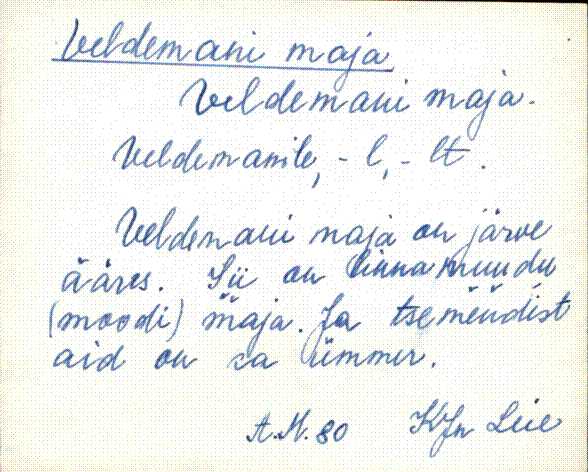 Veldemani maja
Veldemani maja.
Veldemanile, -l, -lt.
Veldemani maja on järve
ääres. Sii on linnamuudu
(moodi) maja. Ja tsemendist
aid on ka ümmer.
A.N. 80 KJn Leie